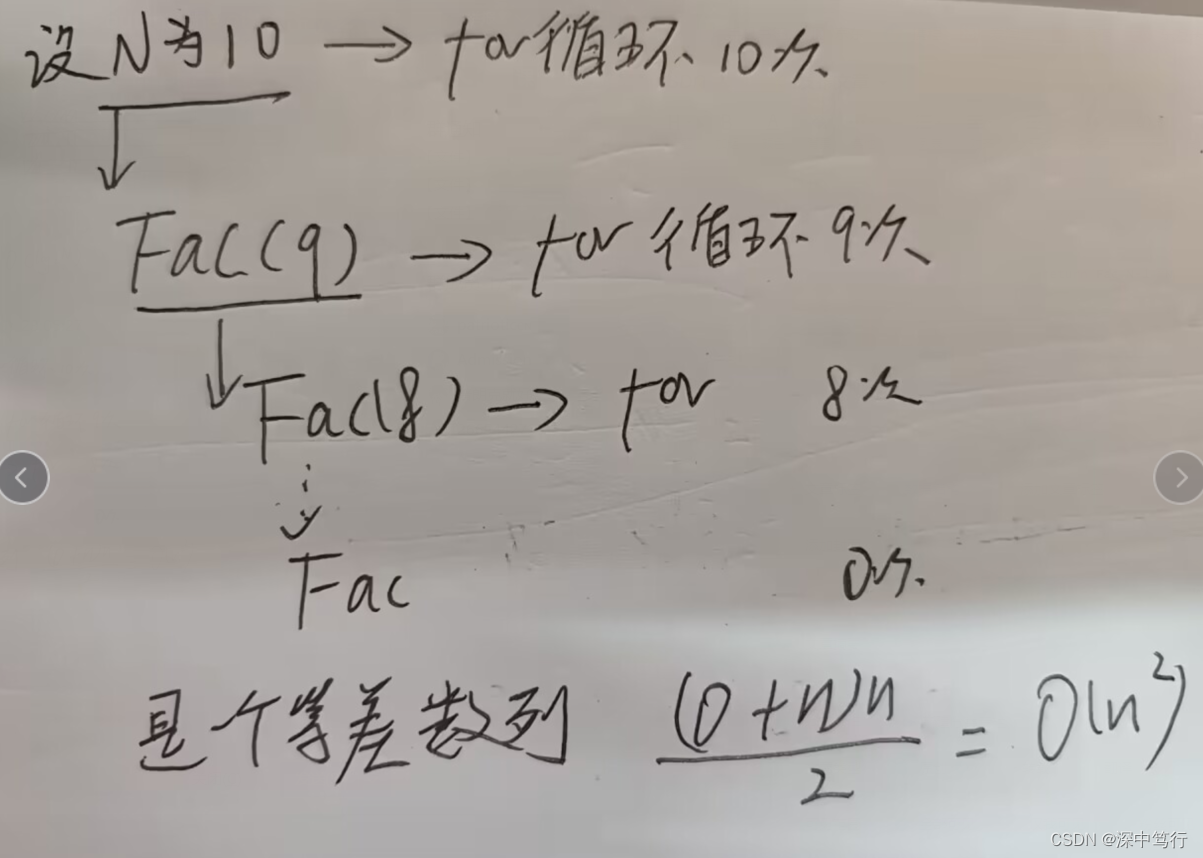 设N为10 → for循环10次
Fac(9) → for循环9次
Fac(8) → for 8次
Fac 0次
是个等差数列 (0+n)n/2 = O(n²)
CSDN @深中笃行